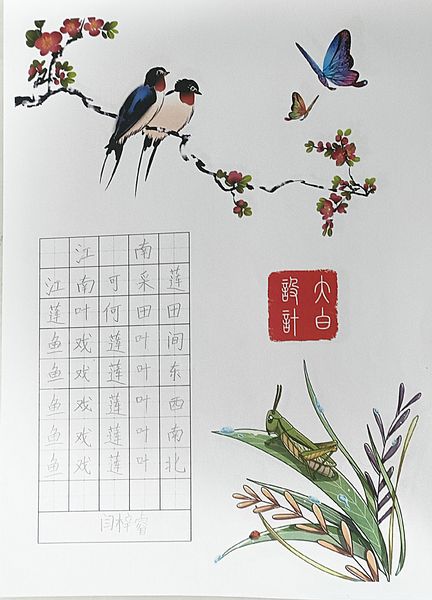 江南
江南可采莲
莲叶何田田
鱼戏莲叶间
鱼戏莲叶东
鱼戏莲叶西
鱼戏莲叶南
鱼戏莲叶北
闫梓睿
大白
設計